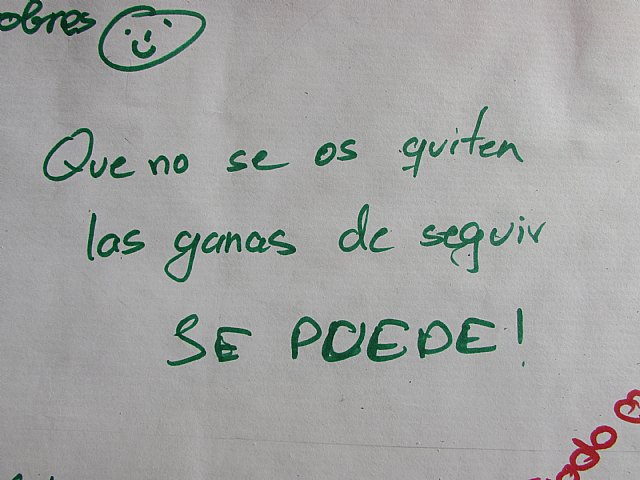 Que no se os quiten
las ganas de seguir
SE PUEDE!